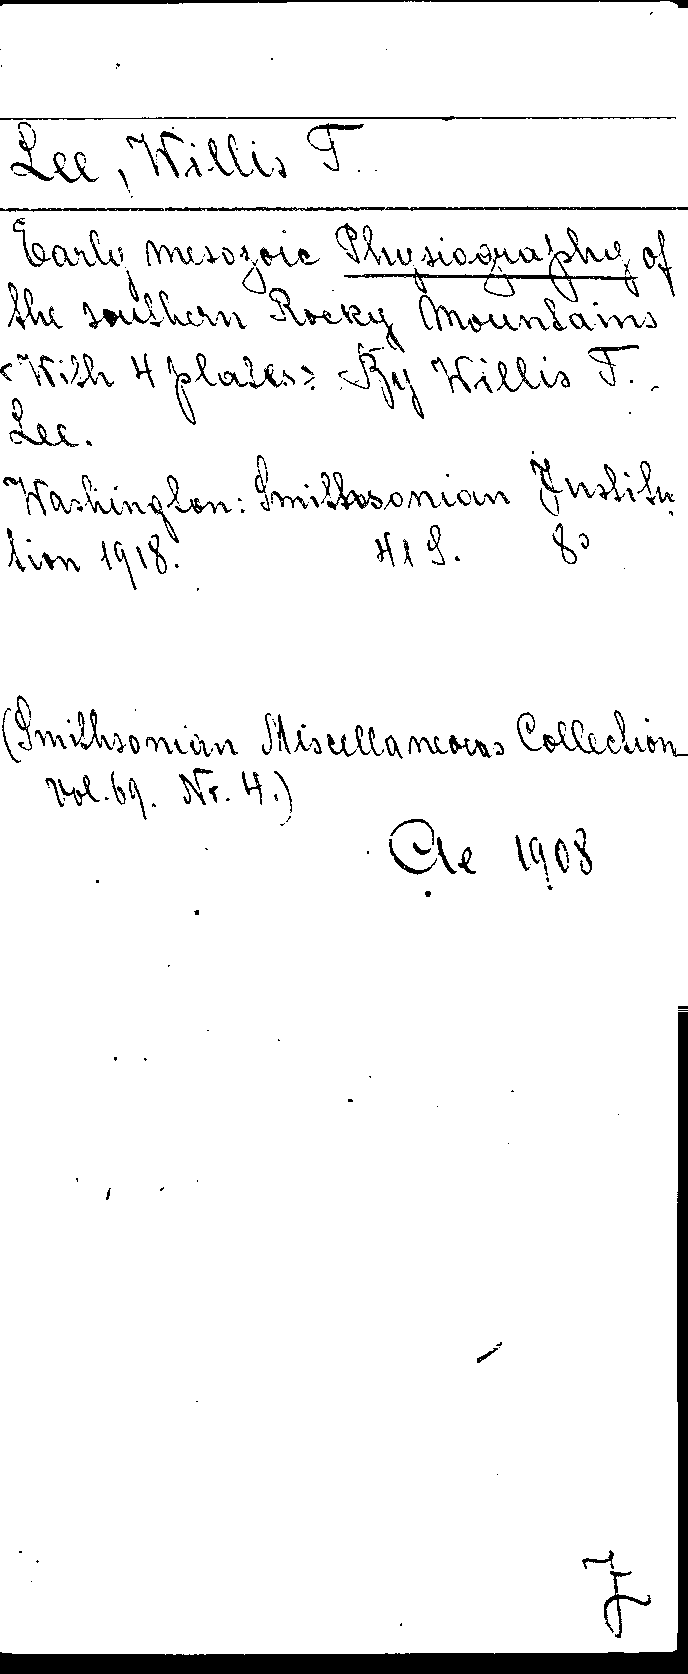 Lee, Willis T.
Early mesozoic Physiography of
the southern Rocky Mountains
<With 4 plates> By Willis T.
Lee.
Washington: Smithsonian Institu
tion 1918. 41 S. 8°
(Smithsonian Miscellaneous Collection
vol. 69. Nr. 4.)
Ae 1908